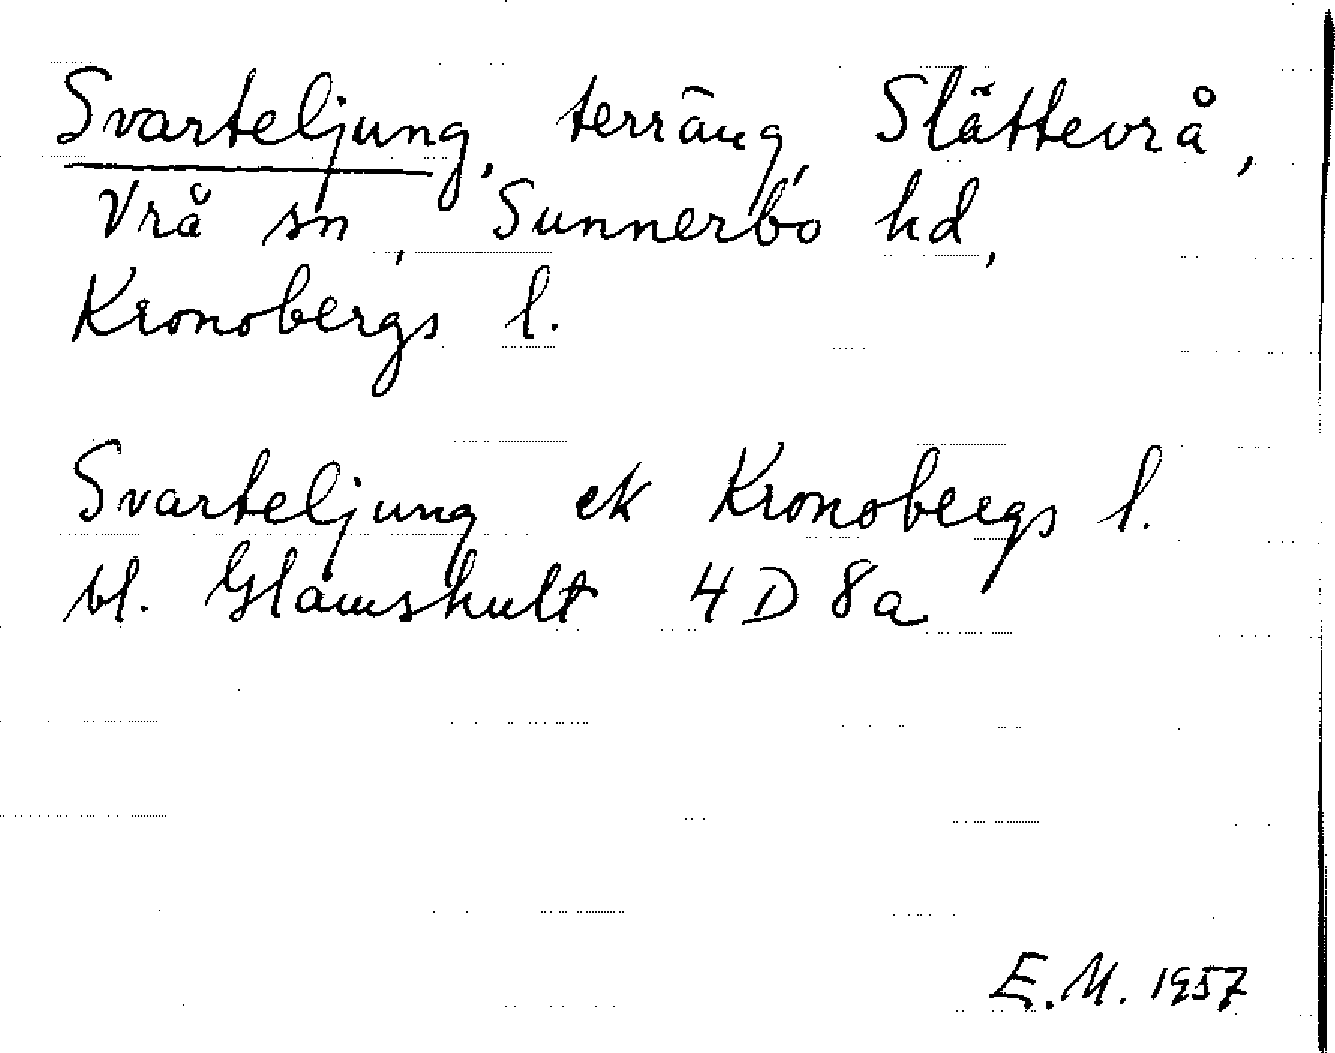 Svarteljung, terräng, Slättevrå,
Vrå sn, Sunnerbo hd,
Kronobergs l.
Svarteljung ek Kronobergs l.
bl. Glamshult 4 D 8 a
E. M. 1957